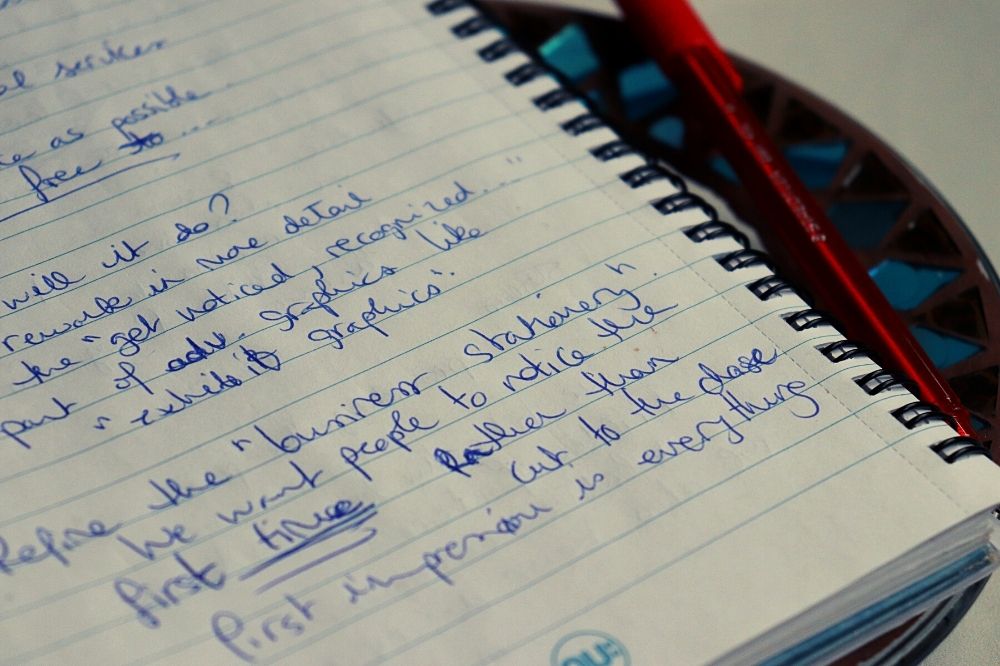 services
as possible
free to...
will it do?
rework in more detail
the "get noticed, recognized..."
part of adv. graphics like
"exhibit graphics".
Refine the "business stationery".
We want people to notice the
first time Rather than
cut to the chase
First impression is everything